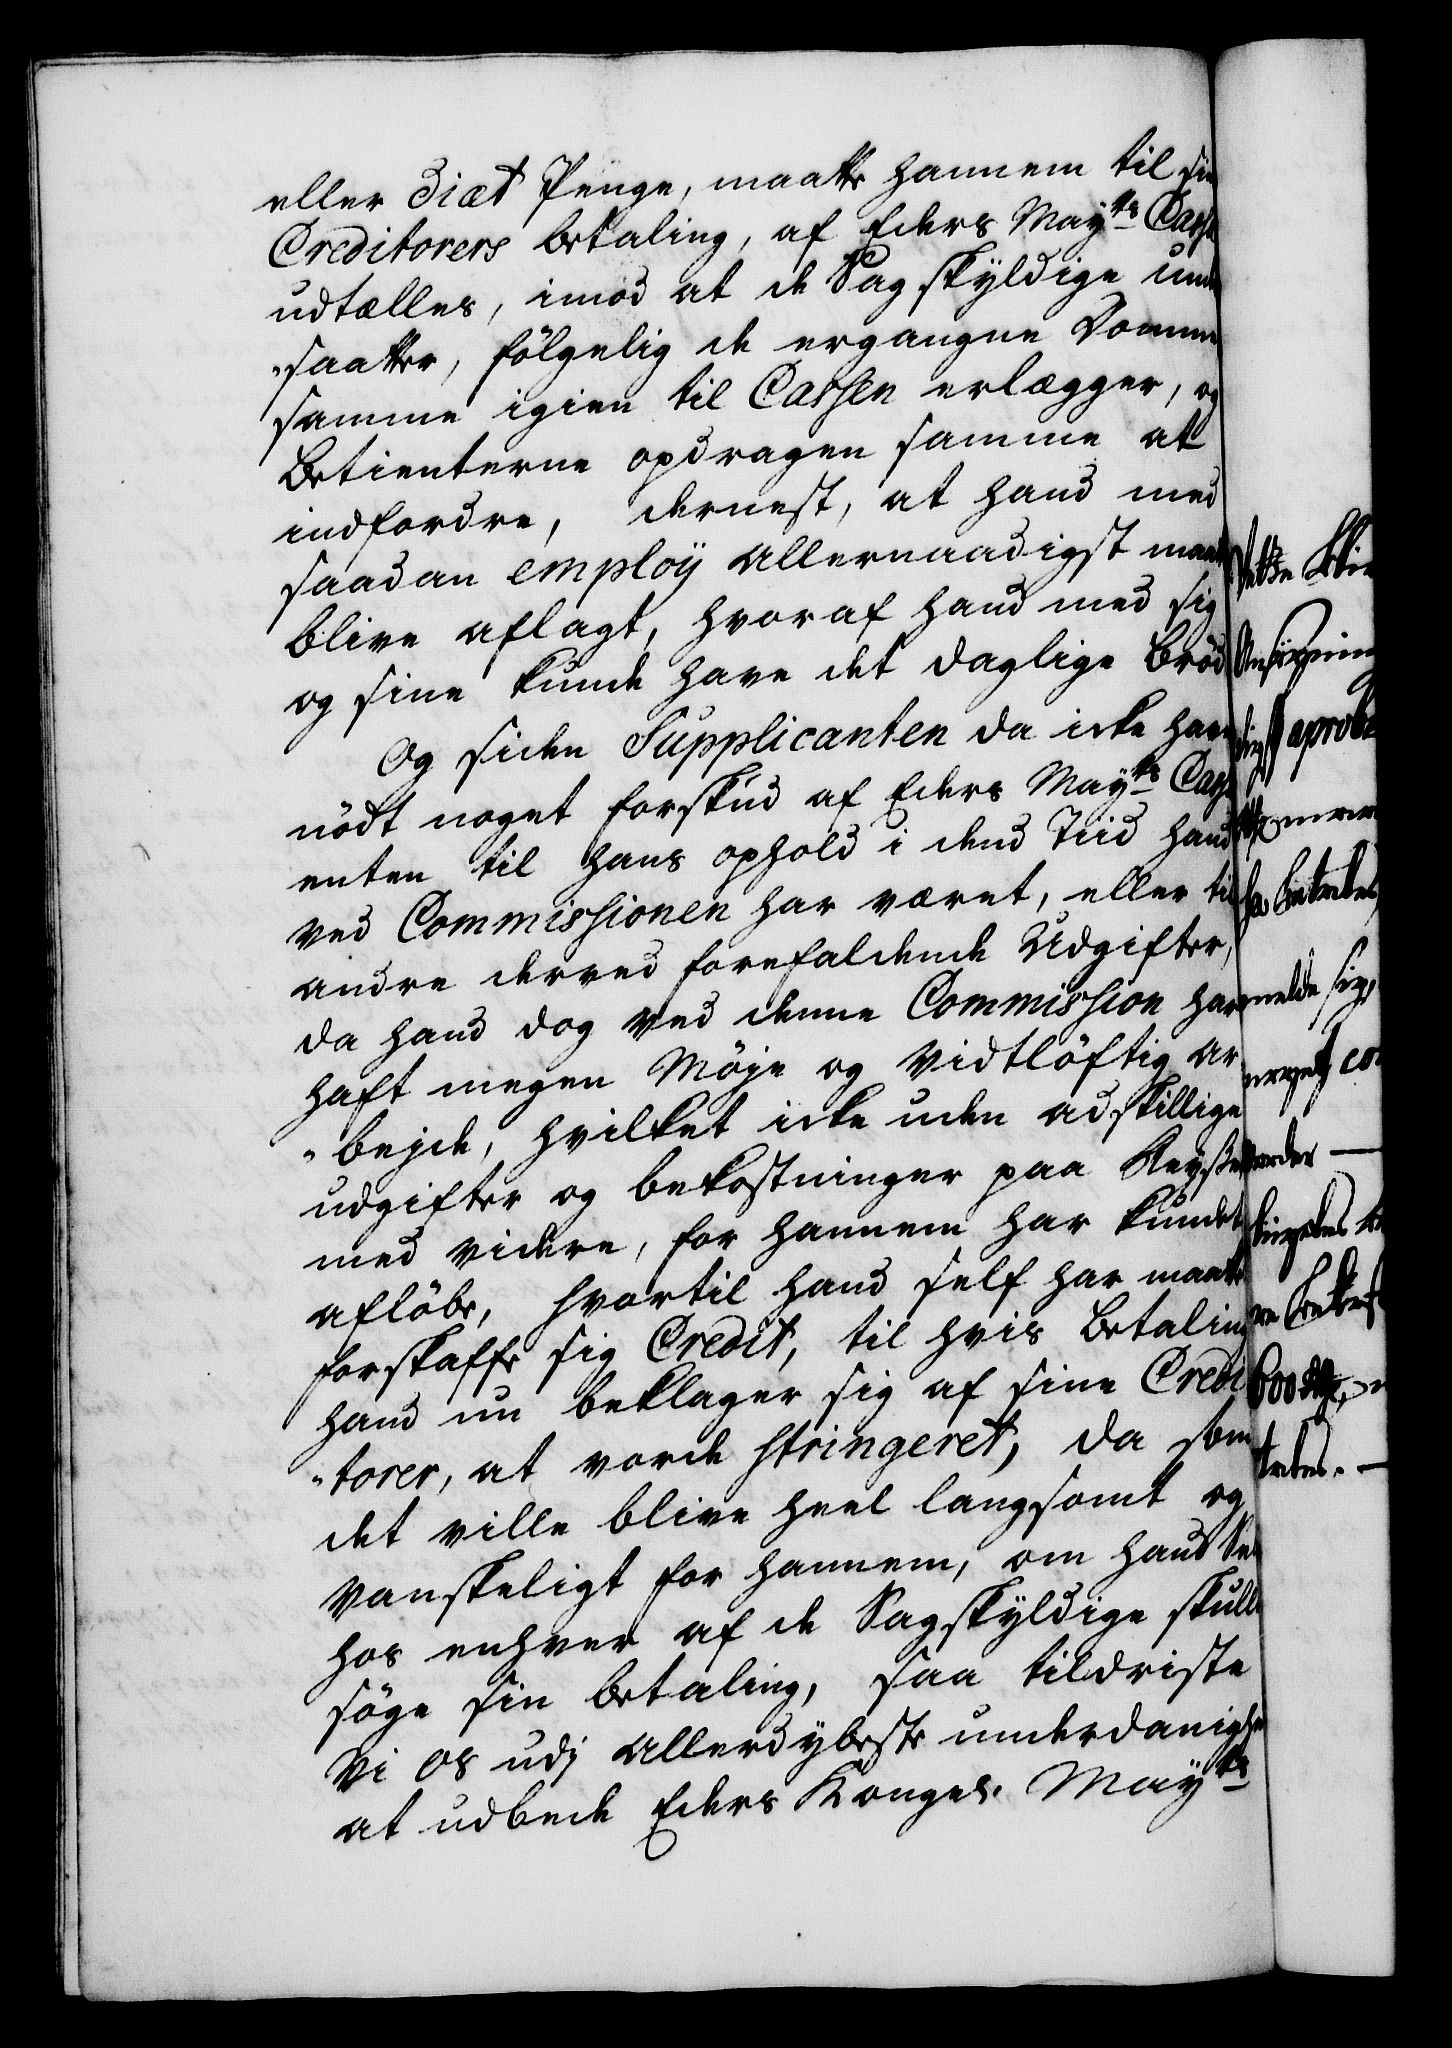 eller Diæt Penge, maatte hannem til sin
Creditorers betaling, af Eders Mayts Cassa
udtælles, imod at de Sagskyldige und
"saatter, fölgelig de ergangne Domme
samme igien til Cassen erlægger, og
Betienterne opdragen samme at
indfordre, dernest, at hand med
saadan employ allernaadigst maatte
blive aflagt, hvoraf hand med sig
og sine kunde have det daglige Bröd
Og siden Supplicanten da icke har
nödt noget forskud af Eders Mayts Cassa
enten til hans ophold i dend Tiid hand
ved Commissionen har været, eller til
andre derved forefaldende Udgifter,
da hand dog ved denne Commission har
haft megen Möje og vidtlöftig ar
"bejde, hvilket icke uden adskillige
udgifter og bekostninger paa Reyser
med videre, for hannem har kundet
aflöbe, hvortil hand self har maatte
forskaffe sig Credit, til hvis Betaling
hand nu beklager sig af sine Credi
"torer, at vorde stringeret, da som
det ville blive heel langsomt og
vanskeligt for hannem, om hand
hos enhver af de Sagskyldige skulle
söge sin betaling, saa tildriste
Vi os udj allerdybeste underdanighed
at udbede Eders Kongel. Mayts